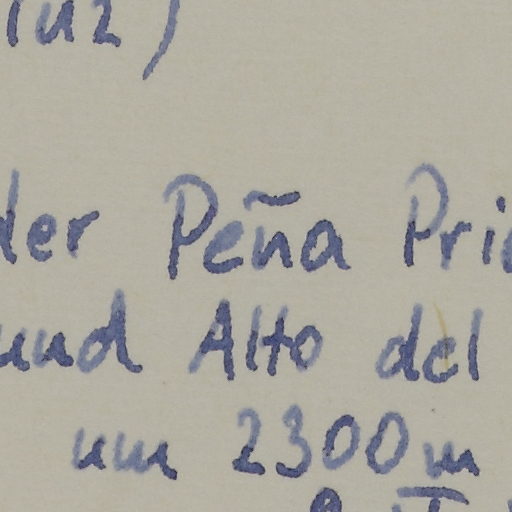 der Peña Pri
und Alto del
um 2300m